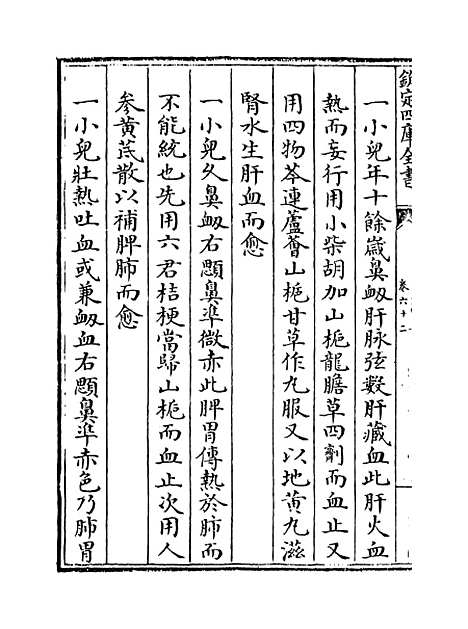 欽定四庫全書
卷六十二
一小兒年十餘嵗鼻衂肝脉弦數肝藏血此肝火血
熱而妄行用小柴胡加山梔龍膽草四劑而血止又
用四物芩連蘆薈山梔甘草作丸服又以地黄丸滋
腎水生肝血而愈
一小兒久鼻衂右顋鼻凖微赤此脾胃傳熱於肺而
不能統也先用六君桔梗當歸山梔而血止次用人
參黄芪散以補脾肺而愈
一小兒壯熱吐血或兼衂血右顋鼻凖赤色乃肺胃